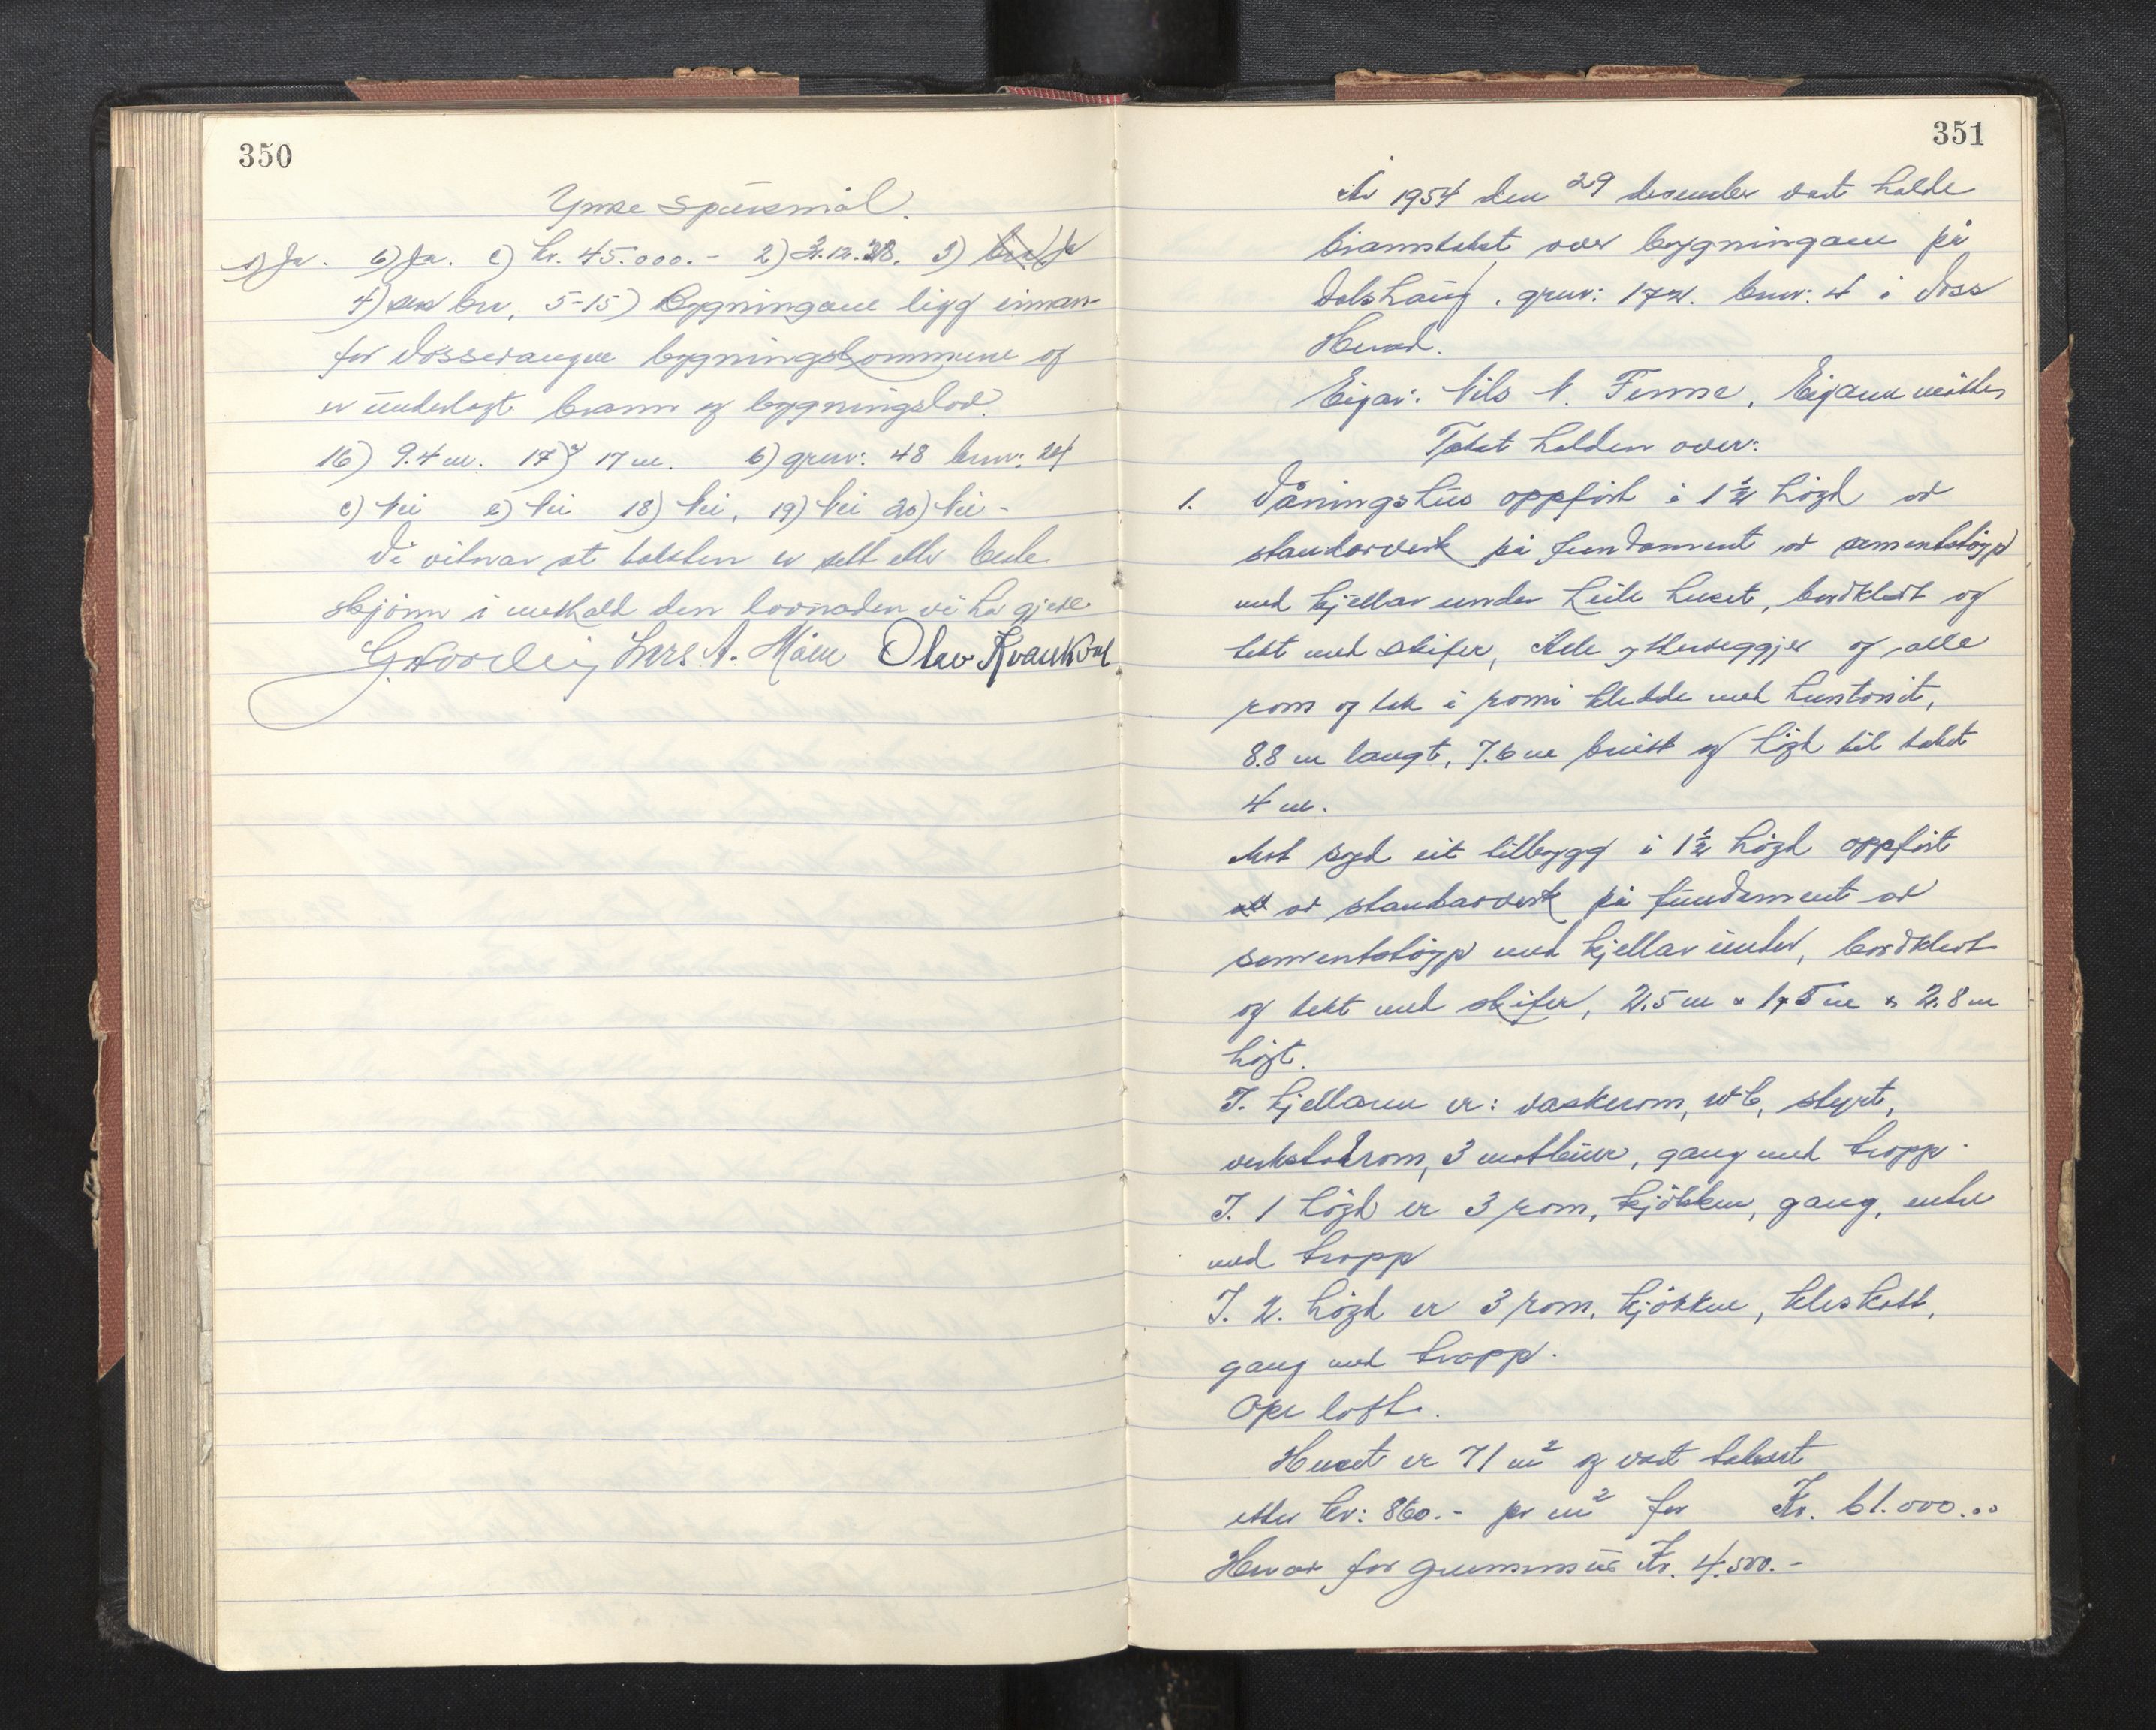 350
Ymse spursmål.
a) Ja. b) Ja. c) kr. 45.000.- 2) 3.12.38. 3) Ja
4) bu, 5-15) Bygningane ligg innan-
for Vossevangen bygningskommune og
er underlagt brann og bygningslov.
16) 9.4 m. 17) a) 17 m. b) gnr: 48 bnr: 24
c) Nei e) Nei 18) Nei, 19) Nei 20) Nei -
Vi vitnar at taksten er sett etter beste
skjønn i medhald den lovnaden vi ha gjeve
Lars A. Møen Olav Kvankvål
351
År 1954 den 29 desember vart halde
branntakst over bygningane på
gnr: 172. bnr: 4 i Voss
Herad.
Eigar: Nils N. Finne, Eigaren møtte,
Takst halden over:
1. Våningshus oppført i 1 1/2 høgd av
standarverk på fundament av sementstøyp
med kjellar under heile huset, bordkledt og
tekt med skifer, Alle ytterveggjer og alle
rom og tak i romi kledde med huntonit,
8.8 m langt, 7.6 m breidt og høgd til taket
4 m.
Mot syd eit tilbygg i 1 1/2 høgd oppført
av standarverk på fundament av
sementstøyp med kjellar under, bordkledt
og tekt med skifer, 2.5 m x 1,5 m x 2.8 m
høgt.
I. kjellaren er: vaskerom, WC, styrt,
verkstadrom, 3 matbuer, gang med tropp.
I. 1 høgd er 3 rom, kjøkken, gang, entre
med tropp
I. 2. høgd er 3 rom, kjøkken, kleskott,
gang med tropp.
Ope loft.
Huset er 71 m2 og vart taksert
etter kr: 860.- pr m2 for Kr. 61.000.00
Herav for grunnmur Kr. 4.500.-